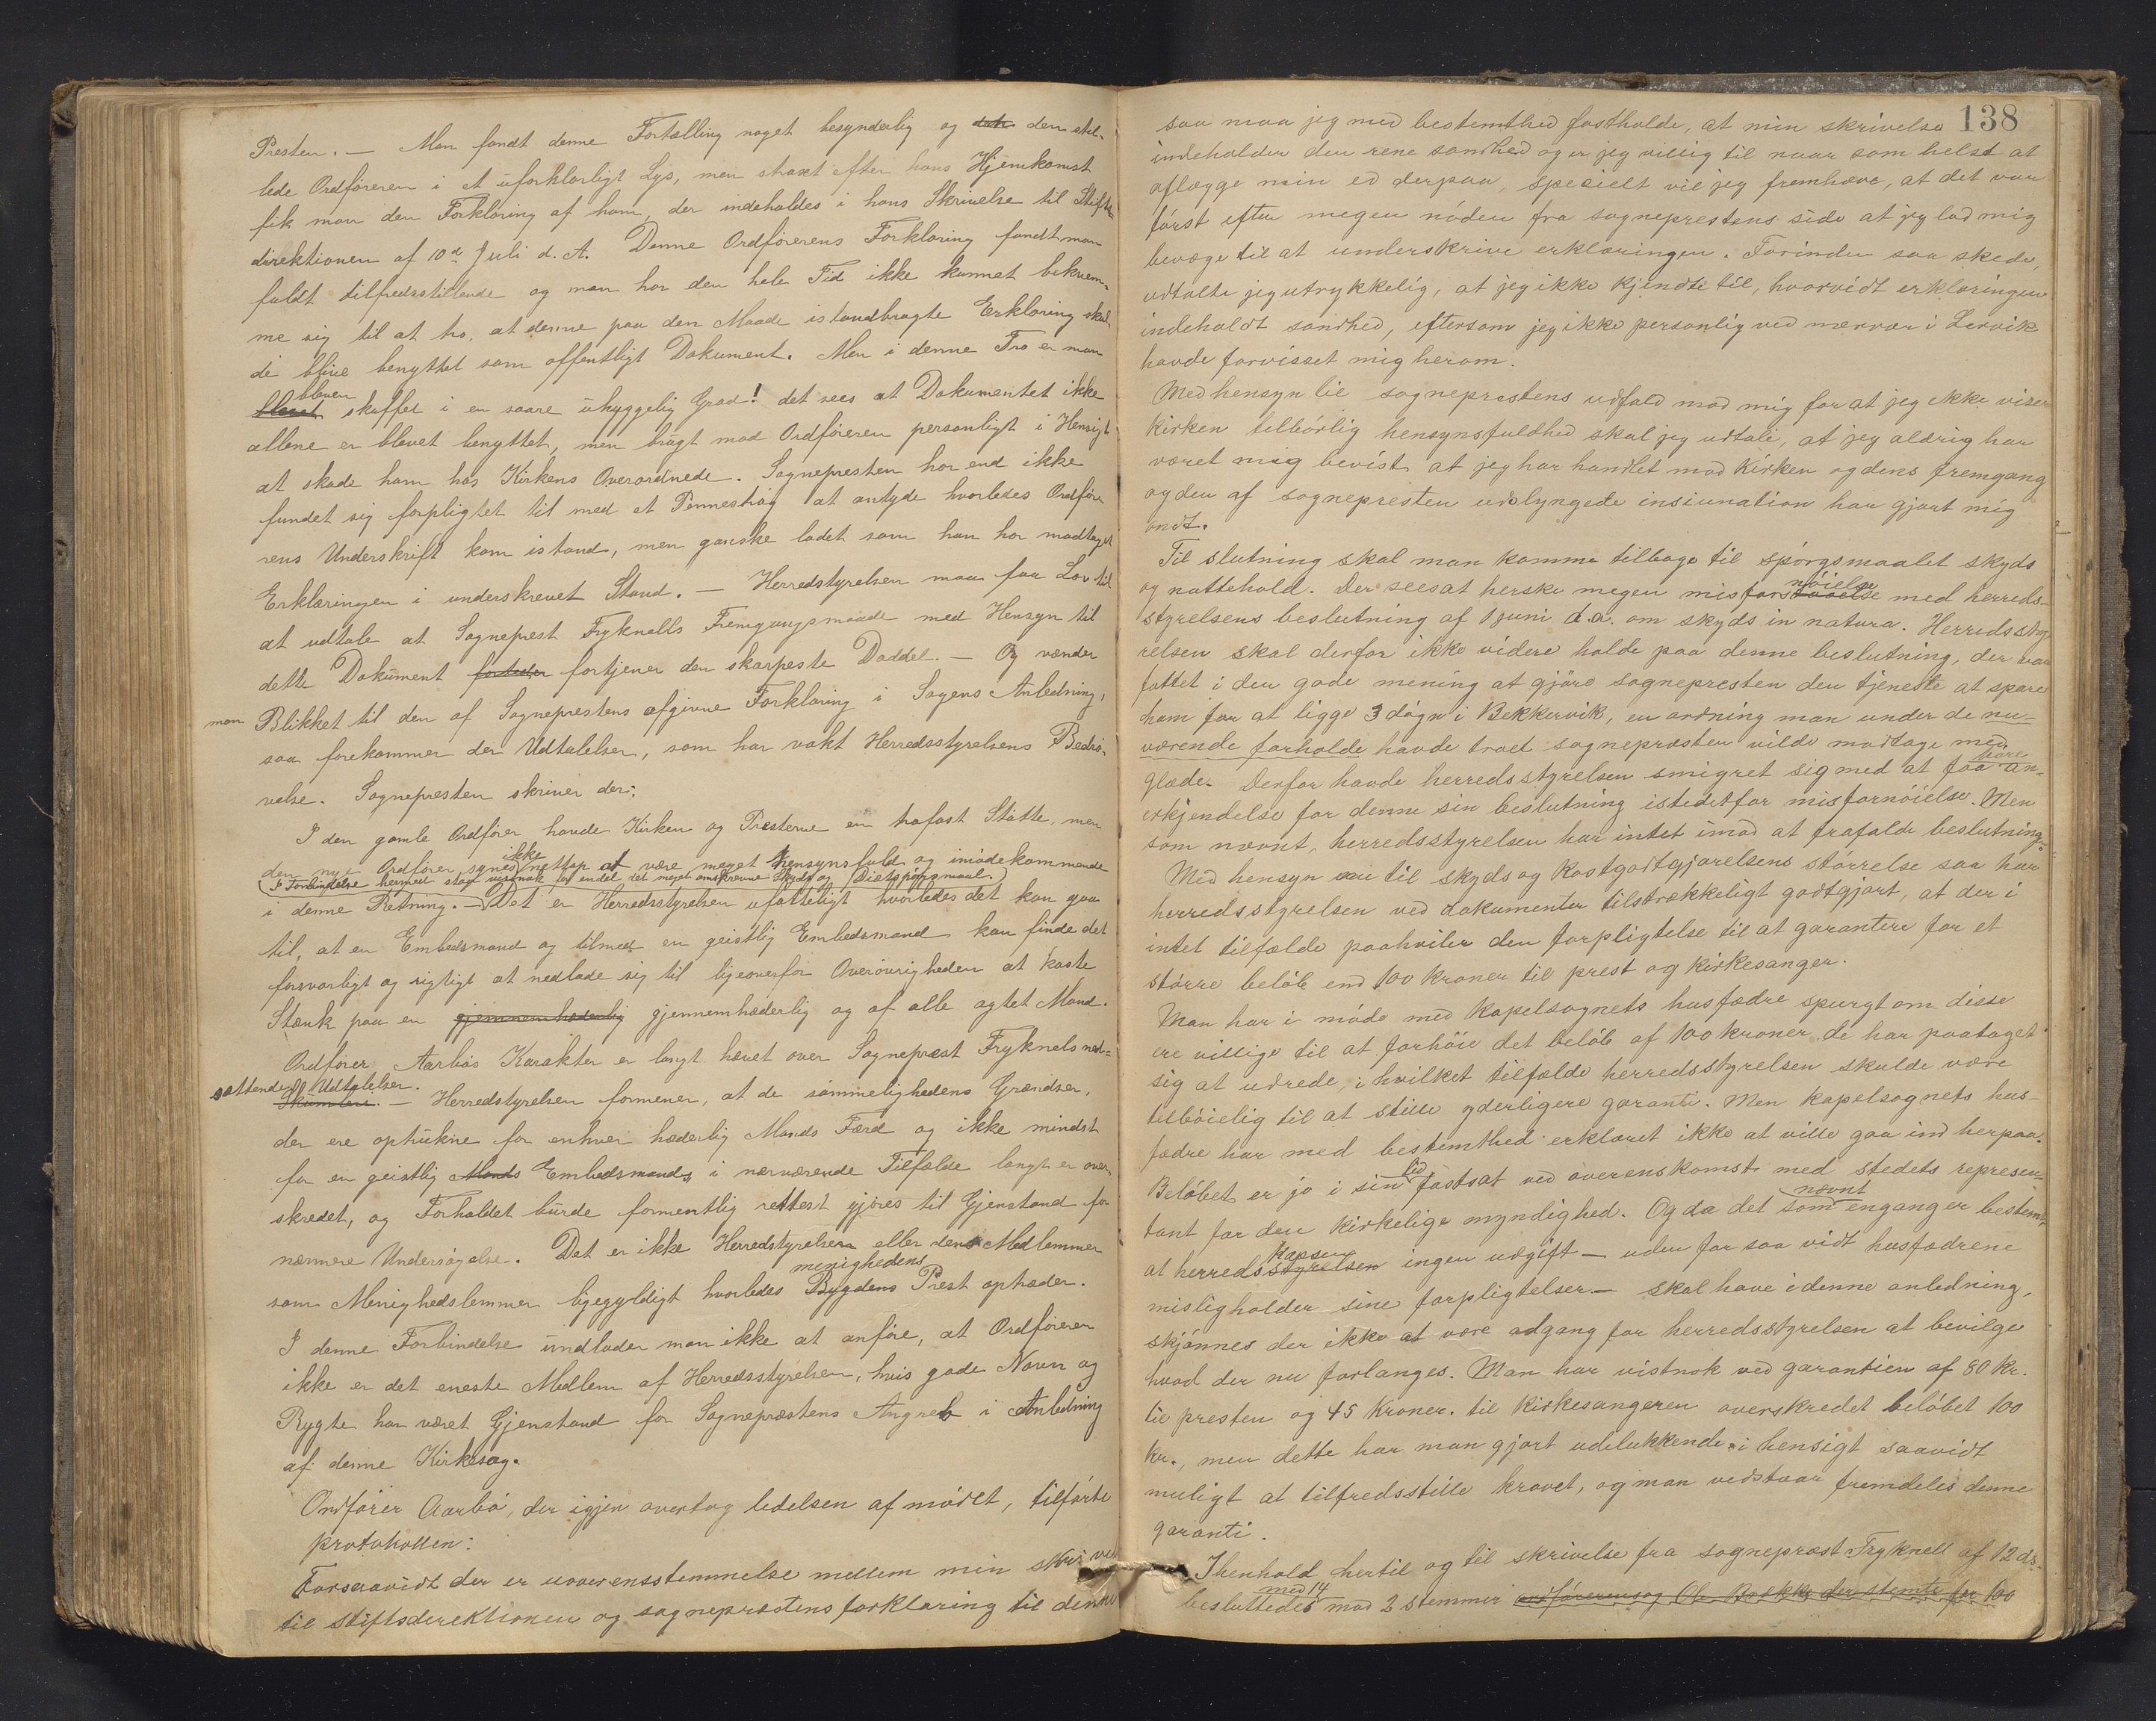 Presten. — Man fandt denne Fortælling noget besynderlig og den stil-
lede Ordføreren i et uforklarligt Lys, men straxt efter hans Hjemkomst
fik man den Forklaring af ham, der indeholdes i hans Skrivelse til Stifts-
direktionen af 10de Juli d. A. Denne Ordførerens Forklaring fandt man
fuldt tilfredsstillende og man har den hele Tid ikke kunnet bekvem-
me sig til at tro, at denne paa den Maade istandbragte Erklæring skul-
de blive benyttet som offentligt Dokument. Men i denne Tro er man
bleven skuffet i en saare uhyggelig Grad! det sees at Dokumentet ikke
allene er blevet benyttet, men brugt mod Ordføreren personligt i Hensigt
at skade ham hos Kirkens Overordnede. Sognepresten har end ikke
fundet sig forpligtet til med et Pennestrøg at antyde hvorledes Ordføre-
rens Underskrift kom istand, men ganske ladet som han har modtaget
Erklæringen i underskrevet Stand. — Herredstyrelsen maa faa Lov til
at udtale at Sogneprest Fryknells Fremgangsmaade med Hensyn til
dette Dokument fortjener den skarpeste Daddel. — Og vender
man Blikket til den af Sogneprestens afgivne Forklaring i Sagens Anledning,
saa forekommer der Udtalelser, som har vakt Herredsstyrelsens Bedrø-
velse. Sognepresten skriver der:
I den gamle Ordfører havde Kirken og Presterne en trofast Støtte, men
den nye Ordfører synes ikke nettop at være meget hensynsfuld og imødekommende
(I Forbindelse hermed staar vistnok for endel det meget omskrevne Skyds og Diætspørgsmaal.)
i denne Retning. — Det er Herredsstyrelsen ufatteligt hvorledes det kan gaa
til, at en Embedsmand og tilmed en geistlig Embedsmand kan finde det
forsvarligt og rigtigt at nedlade sig til ligeoverfor Overøvrigheden at kaste
Stænk paa en gjennemhæderlig gjennemhæderlig og af alle agtet Mand.
Ordfører Aarbøs Karakter er langt hævet over Sogneprest Fryknels ned-
sættende Udtalelser. — Herredstyrelsen formener, at de sømmelighedens Grændser,
der ere optrukne for enhver hæderlig Mands Færd og ikke mindst
for en geistlig Mands Embedsmands i nærværende Tilfælde langt er over-
skredet, og Forholdet burde formentlig rettest gjøres til Gjenstand for
nærmere Undersøgelse. Det er ikke Herredstyrelsen eller dens Medlemmer
som Menighedslemmer ligegyldigt hvorledes Bygdens menighedens Prest optræder.
I denne Forbindelse undlader man ikke at anføre, at Ordføreren
ikke er det eneste Medlem af Herredsstyrelsen, hvis gode Navn og
Rygte har været Gjenstand for Sogneprestens Angreb i Anledning
af denne Kirkesag.
Ordfører Aarbø, der igjen overtog ledelsen af mødet, tilførte
protokollen:
Forsaavidt der er uoverensstemmelse mellem min skrivelse
til stiftsdirektionen og sogneprestens forklaring til denne
138
saa maa jeg med bestemthed fastholde, at min skrivelse
indeholder den rene sandhed og er jeg villig til naar som helst at
aflægge min ed derpaa, specielt vil jeg fremhæve, at det var
først efter megen nøden fra sogneprestens side at jeg lod mig
bevæge til at underskrive erklæringen. Forinden saa skede,
udtalte jeg utrykkelig, at jeg ikke kjendte til, hvorvidt erklæringen
indeholdt sandhed, eftersom jeg ikke personlig ved nærvær i Lervik
havde forvisset mig herom.
Med hensyn til sogneprestens udfald mod mig for at jeg ikke viser
kirken tilbørlig hensynsfuldhed skal jeg udtale, at jeg aldrig har
været mig bevist at jeg har handlet mod kirken og dens fremgang
og den af sognepresten udslyngede insiunation har gjort mig
ondt.
Til slutning skal man komme tilbage til spørgsmaalet skyds
og nattehold. Der sees at herske megen misfornøielse med herreds-
styrelsens beslutning af 1 juni d.a. om skyds in natura. Herredssty-
relsen skal derfor ikke videre holde paa denne beslutning, der var
fattet i den gode mening at gjøre sognepresten den tjeneste at spare
ham for at ligge 3 døgn i Bekkervik, en ordning man under de nu-
værende forholde havde troet sognepresten vilde modtage med
glæde. Derfor havde herredsstyrelsen smigret sig med at faa an-
erkjendelse for denne sin beslutning istedetfor misfornøielse. Men
som nævnt, herredsstyrelsen har intet imod at frafalde beslutningen.
Med hensyn til skyds og kostgodtgjørelsens størrelse saa har
herredsstyrelsen ved dokumenter tilstrækkeligt godtgjort, at der i
intet tilfælde paahviler den forpligtelse til at garantere for et
større beløb end 100 kroner til prest og kirkesanger.
Man har i møde med kapelsognets husfædre spurgt om disse
ere villige til at forhøie det beløb af 100 kroner de har paataget
sig at udrede, i hvilket tilfælde herredsstyrelsen skulde være
tilbøielig til at stille yderligere garanti. Men kapelsognets hus-
fædre har med bestemthed erklæret ikke at ville gaa ind herpaa.
Beløbet er jo i sin tid fastsat ved overenskomst med stedets represen-
tant for den kirkelige myndighed. Og da det som nævnt engang er bestemt,
at herredskassen ingen udgift — uden for saa vidt husfædrene
misligholder sine forpligtelser — skal have i denne anledning,
skjønnes der ikke at være adgang for herredsstyrelsen at bevilge
hvad der nu forlanges. Man har vistnok ved garantien af 80 kr.
til presten og 45 kroner. til kirkesangeren overskredet beløbet 100
kr., men dette har man gjort udelukkende i hensigt saavidt
muligt at tilfredsstille kravet, og man vedstaar fremdeles denne
garanti.
I henhold hertil og til skrivelse fra sogneprest Fryknell af 12 ds.
besluttedes med 14 mod 2 stemmer ordføreren og Ol. Bekke der stemte for 100